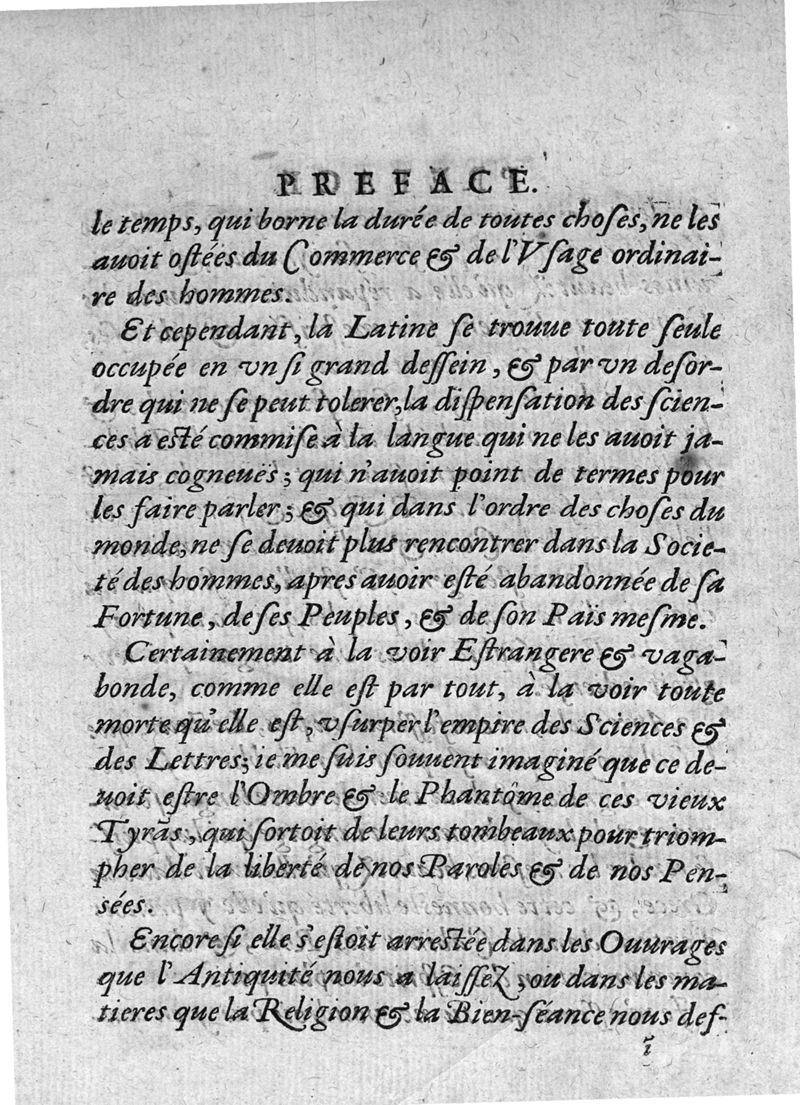 PREFACE.
le temps, qui borne la durée de toutes choſes, ne les
auoit oſtées du Commerce & de l'Vſage ordinai-
re des hommes.
Et cependant, la Latine ſe trouue toute ſeule
occupée en vn ſi grand deſſein, & par vn deſor-
dre qui ne ſe peut tolerer, la diſpenſation des ſcien-
ces a eſté commiſe à la langue qui ne les auoit ja-
mais cogneuës; qui n'auoit point de termes pour
les faire parler; & qui dans l'ordre des choſes du
monde, ne ſe deuoit plus rencontrer dans la Socie-
té des hommes, apres auoir eſté abandonnée de ſa
Fortune, de ſes Peuples, & de ſon Païs meſme.
Certainement à la voir Eſtrangere & vaga-
bonde, comme elle eſt par tout, à la voir toute
morte qu'elle eſt, vſurper l'empire des Sciences &
des Lettres; ie me ſuis ſouuent imaginé que ce de-
uoit eſtre l'Ombre & le Phantôme de ces vieux
Tyrãs, qui ſortoit de leurs tombeaux pour triom-
pher de la liberté de nos Paroles & de nos Pen-
sées.
Encore ſi elle s'eſtoit arreſtée dans les Ouurages
que l'Antiquité nous a laiſſez, ou dans les ma-
tieres que la Religion & la Bien-ſéance nous def-
ĩ